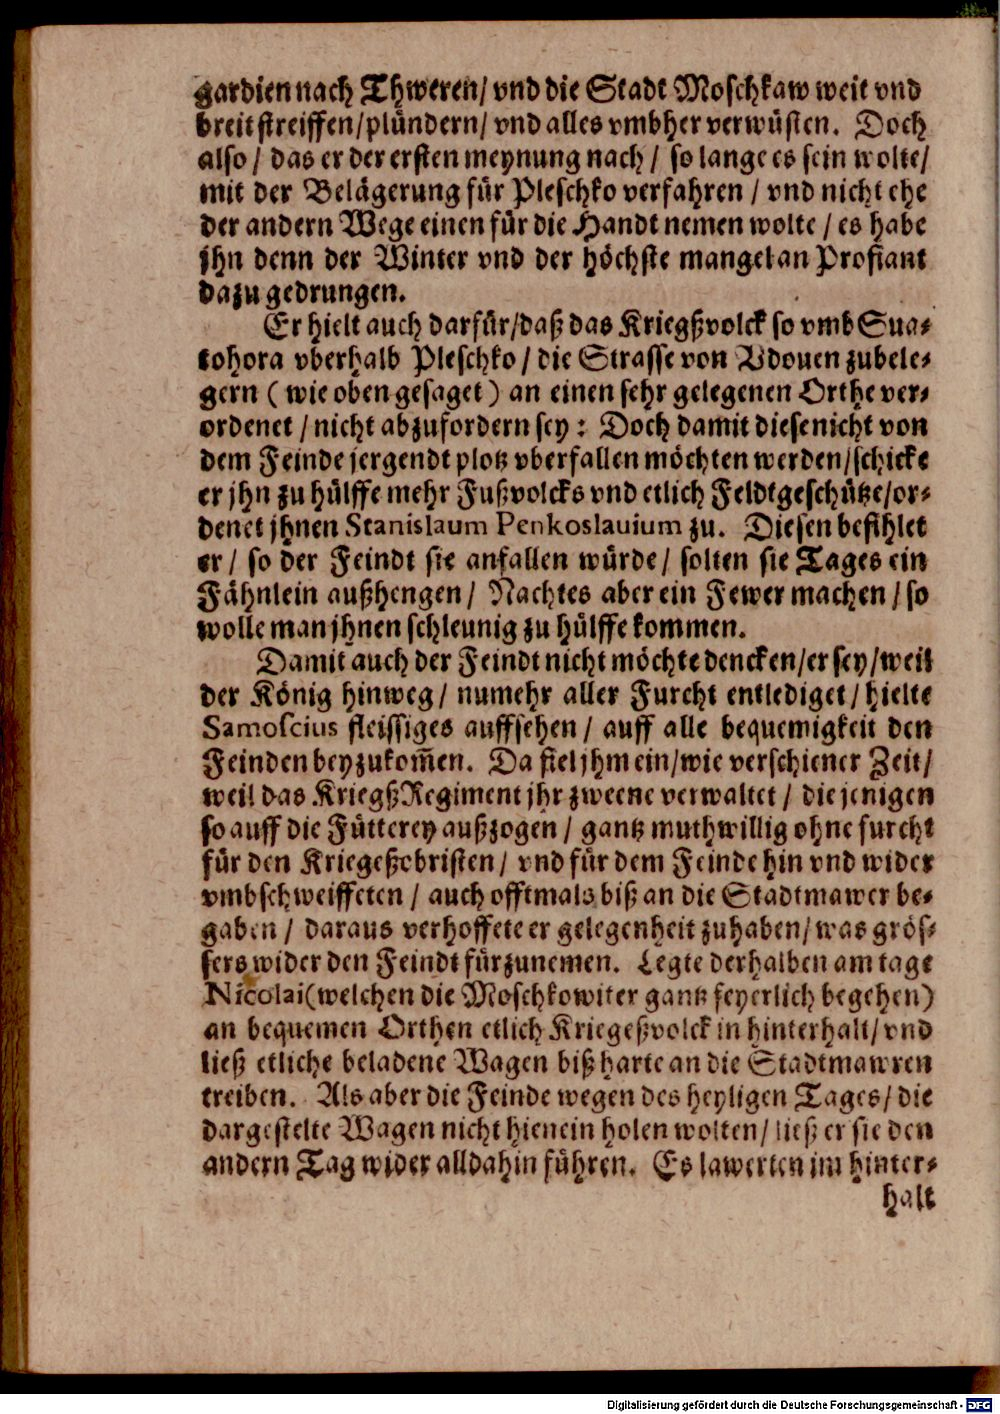 gardien nach Thweren/ vnd die Stadt Moschkaw weit vnd
breit streiffen/plündern/ vnd alles vmbher verwüsten. Doch
also / das er der ersten meynung nach / so lange es sein wolte/
mit der Belägerung für Pleschko verfahren / vnd nicht ehe
der andern Wege einen für die Handt nemen wolte / es habe
jhn denn der Winter vnd der höchste mangel an Profiant
dazu gedrungen.
Er hielt auch darfür/daß das Kriegßvolck so vmb Sua-
tohora vberhalb Pleschko / die Strasse von Vdouen zubele-
gern ( wie oben gesaget ) an einen sehr gelegenen Orthe ver-
ordenet / nicht abzufordern sey : Doch damit diese nicht von
dem Feinde jergendt plotz vberfallen möchten werden/schicke
er jhn zu hülffe mehr Fußvolcks vnd etlich Feldtgeschütze/or-
denet jhnen Stanislaum Penkoslauium zu. Diesen befihlet
er / so der Feindt sie anfallen würde/ solten sie Tages ein
Fähnlein außhengen / Nachtes aber ein Fewer machen / so
wolle man jhnen schleunig zu hülffe kommen.
Damit auch der Feindt nicht möchte dencken/er sey/weil
der König hinweg / numehr aller Furcht entlediget / hielte
Samoscius fleissiges auffsehen / auff alle bequemigkeit den
Feinden beyzukom̃en. Da fiel jhm ein/wie verschiener Zeit/
weil das KriegßRegiment jhr zweene verwaltet / die jenigen
so auff die Fütterey außzogen / gantz muthwillig ohne furcht
für den Kriegeßobristen / vnd für dem Feinde hin vnd wider
vmbschweiffeten / auch offtmals biß an die Stadtmawer be-
gaben / daraus verhoffete er gelegenheit zuhaben/ was grös-
sers wider den Feindt fürzunemen. Legte derhalben am tage
Nicolai(welchen die Moschkowiter gantz feyerlich begehen)
an bequemen Orthen etlich Kriegeßvolck in hinterhalt/ vnd
ließ etliche beladene Wagen biß harte an die Stadtmawren
treiben. Als aber die Feinde wegen des heyligen Tages / die
dargestelte Wagen nicht hienein holen wolten/ ließ er sie den
andern Tag wider alldahin führen. Es lawerten im hinter-
halt
Digitalisierung gefördert durch die Deutsche Forschungsgemeinschaft - DFG